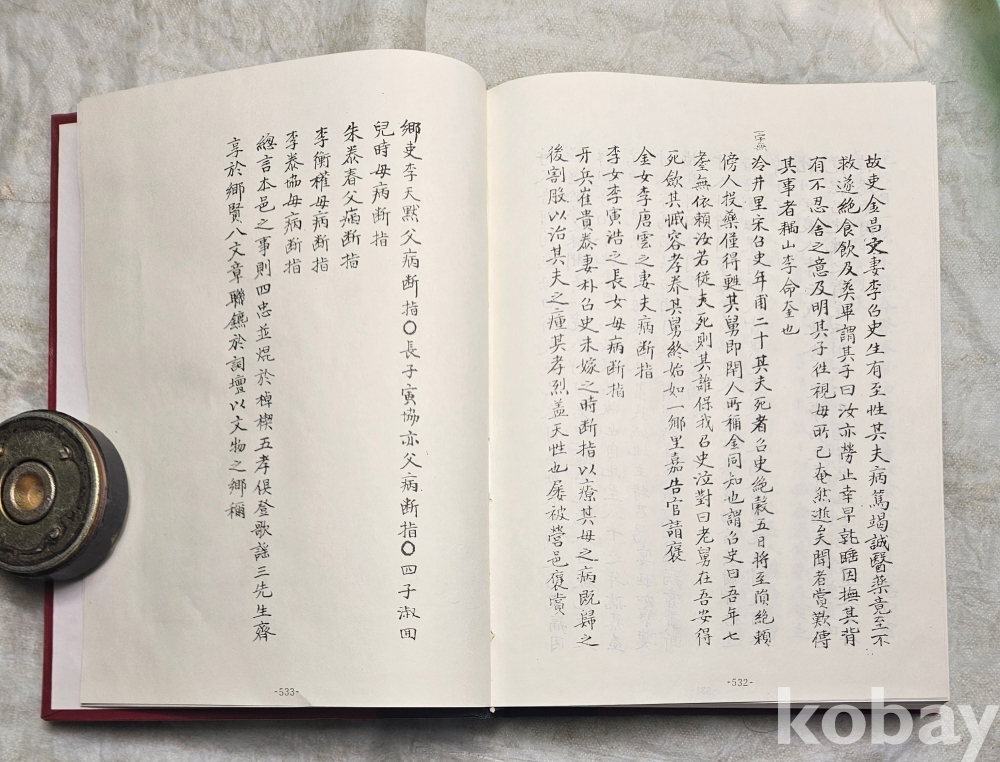 故吏金昌文妻李召史生有至性其夫病篤竭誠醫藥竟至不
救遂絶食飮及葬畢謂其子曰汝亦勞止幸早就睡因撫其背
有不忍舍之意及明其子徃視母所已奄然逝矣聞者賞歎傳
其事者稱山李命奎也
冷井里宋召史年甫二十其夫死者召史絶穀五日將至隕絶賴
傍人投藥僅得甦其舅即閈人所稱金同知也謂召史曰吾年七
耋無依賴汝若從夫死則其誰保我召史泣對曰老舅在吾安得
死歛其慽容孝養其舅終始如一鄕里嘉告官請褒
金女李唐雲之妻夫病断指
李女李寅浩之長女母病断指
牙兵崔貴泰妻朴召史未嫁之時断指以療其母之病既歸之
後割股以治其夫之瘇其孝烈盖天性也屡被營邑褒賞
-532-
鄕吏李天默父病断指○長子寅協亦父病断指○四子淑回
兒時母病断指
朱泰春父病断指
李衡權母病断指
李泰協母病断指
總言本邑之事則四忠並焜於棹楔五孝俱登歌謠三先生齊
享於鄕賢八文章聯鑣於詞壇以文物之鄕稱
-533-
kobay